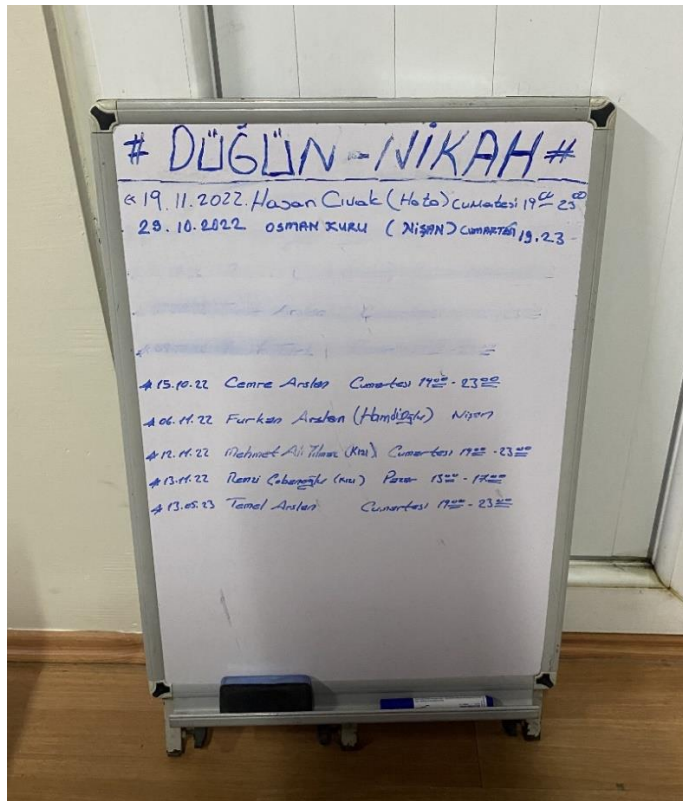 # DÜĞÜN - NİKAH #
19.11.2022. Hasan Cıvak (Hoto) Cumartesi 19⁰⁰ 23⁰⁰
29.10.2022 OSMAN KURU ( NİŞAN ) CUMARTESİ 19.23
# 15.10.22 Cemre Arslan Cumartesi 19⁰⁰ - 23⁰⁰
# 06.11.22 Furkan Arslan (Hamdioğlu) Nişan
# 12.11.22 Mehmet Ali Yılmaz (Kızı) Cumartesi 19⁰⁰ - 23⁰⁰
# 13.11.22 Remzi Çobanoğlu (Kızı) Pazar 13⁰⁰ - 17⁰⁰
# 13.05.23 Temel Arslan Cumartesi 19⁰⁰ - 23⁰⁰